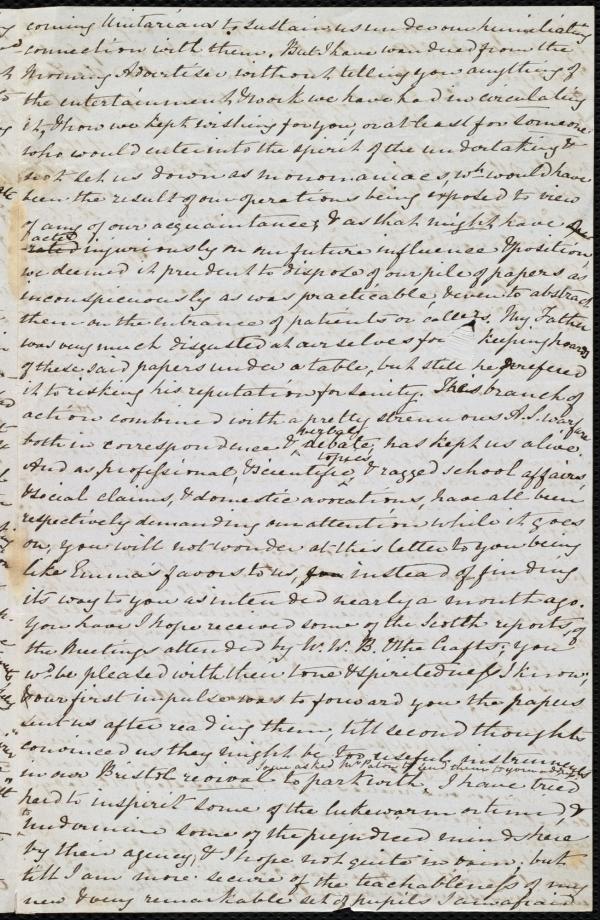 coming Unitarians to sustain us under our humiliating
connection with them. But I have wandered from the
Morning Advertiser without telling you anything of
the entertainment & work we have had in circulating
it, & how we kept wishing for you, or at least for someone
who would enter into the spirit of the undertaking &
not set us down as monomaniacs, wh. would have
been the result of our operations being exposed to view
of any of our acquaintances; & as that might have
acted
injuriously on our future influence & position,
we deemed it prudent to dispose of our pile of papers as
inconspicuously as was practicable & even to abstract
them on the entrance of patients or callers. My Father
was very much disgusted at ourselves for keeping hoards
of these said papers under a table, but still he preferred
it to risking his reputation for sanity. This branch of
action combined with a pretty strenuous A.S. warfare
verbal
both in correspondence & debate, has kept us alive.
topics
And as professional, & scientific, & ragged school affairs,
& social claims, & domestic avocations, have all been
respectively demanding our attention while it goes
on, you will not wonder at this letter to you being
like Emma's favors to us, instead of finding
its way to you as intended nearly a month ago.
You have I hope received some of the Scotch reports, of
the Meetings attended by W. W. B. & the Crafts; you
wd. be pleased with their tone & spiritedness I know,
& our first impulse was to forward you the papers
sent us after reading them, till second thoughts
convinced us they might be too useful instruments
so we asked to send them to you
in our Bristol revival to part with. I have tried
hard to inspirit some of the lukewarm or timid, &
to undermine some of the prejudiced minds here
by their agency, & I hope not quite in vain; but
till I am more secure of the teachableness of my
new & very remarkable set of pupils I am afraid